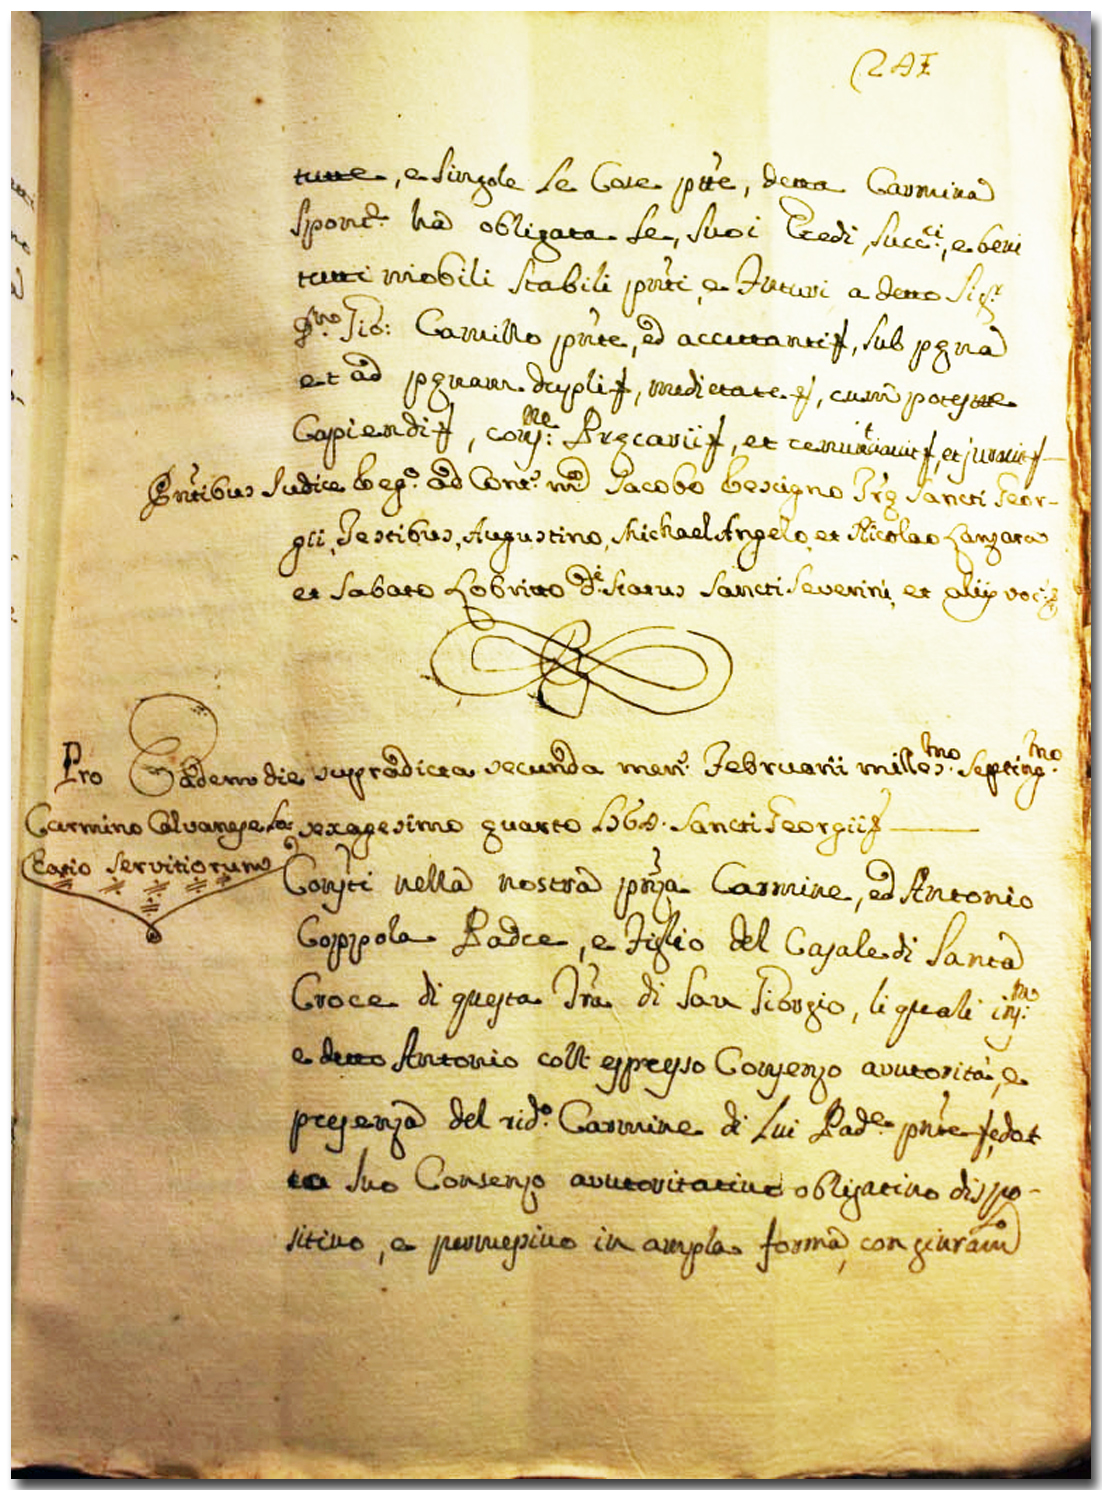 tutte, e singole le Cose pñte, detta Carmina
spont.e hà obligata se, suoi Eredi, succ.ri, e beni
tutti mobili stabili pñti, e futuri a detto Sig.r
D.no Gio: Camillo pñte, ed accettante, sub pena
et ad penam dupli, medietate, cum potestate
Capiendi, const.ne Precarii, et renuntiavit, et juravit
Pñtibus Judice Reg.o ad Cont.s Jacobo Bescigno Sancti Geor-
gii, Testibus, Augustino, Michael Angelo, et Nicolao Lanzara
et Sabato Lobritto de Status Sancti Severini, et aliis
Pro Eadem die supradicta secunda mens. Februarii milles.mo septing.mo
Carmino Calvanese sexagesimo quarto 1764. Sancti Georgii
servitiorum
Cons.ti nella nostra pñza Carmine, ed Antonio
Coppola Padre, e Figlio del Casale di Santa
Croce di questa Trã di San Giorgio, li quali
e detto Antonio coll espresso Consenzo autorità, e
presenza del rid.o Carmine di Lui Pad.e pñte, e dat
ta suo Consenzo autoritativo obligativo dispo-
sitivo, e permessivo in ampla forma, con giuram.o